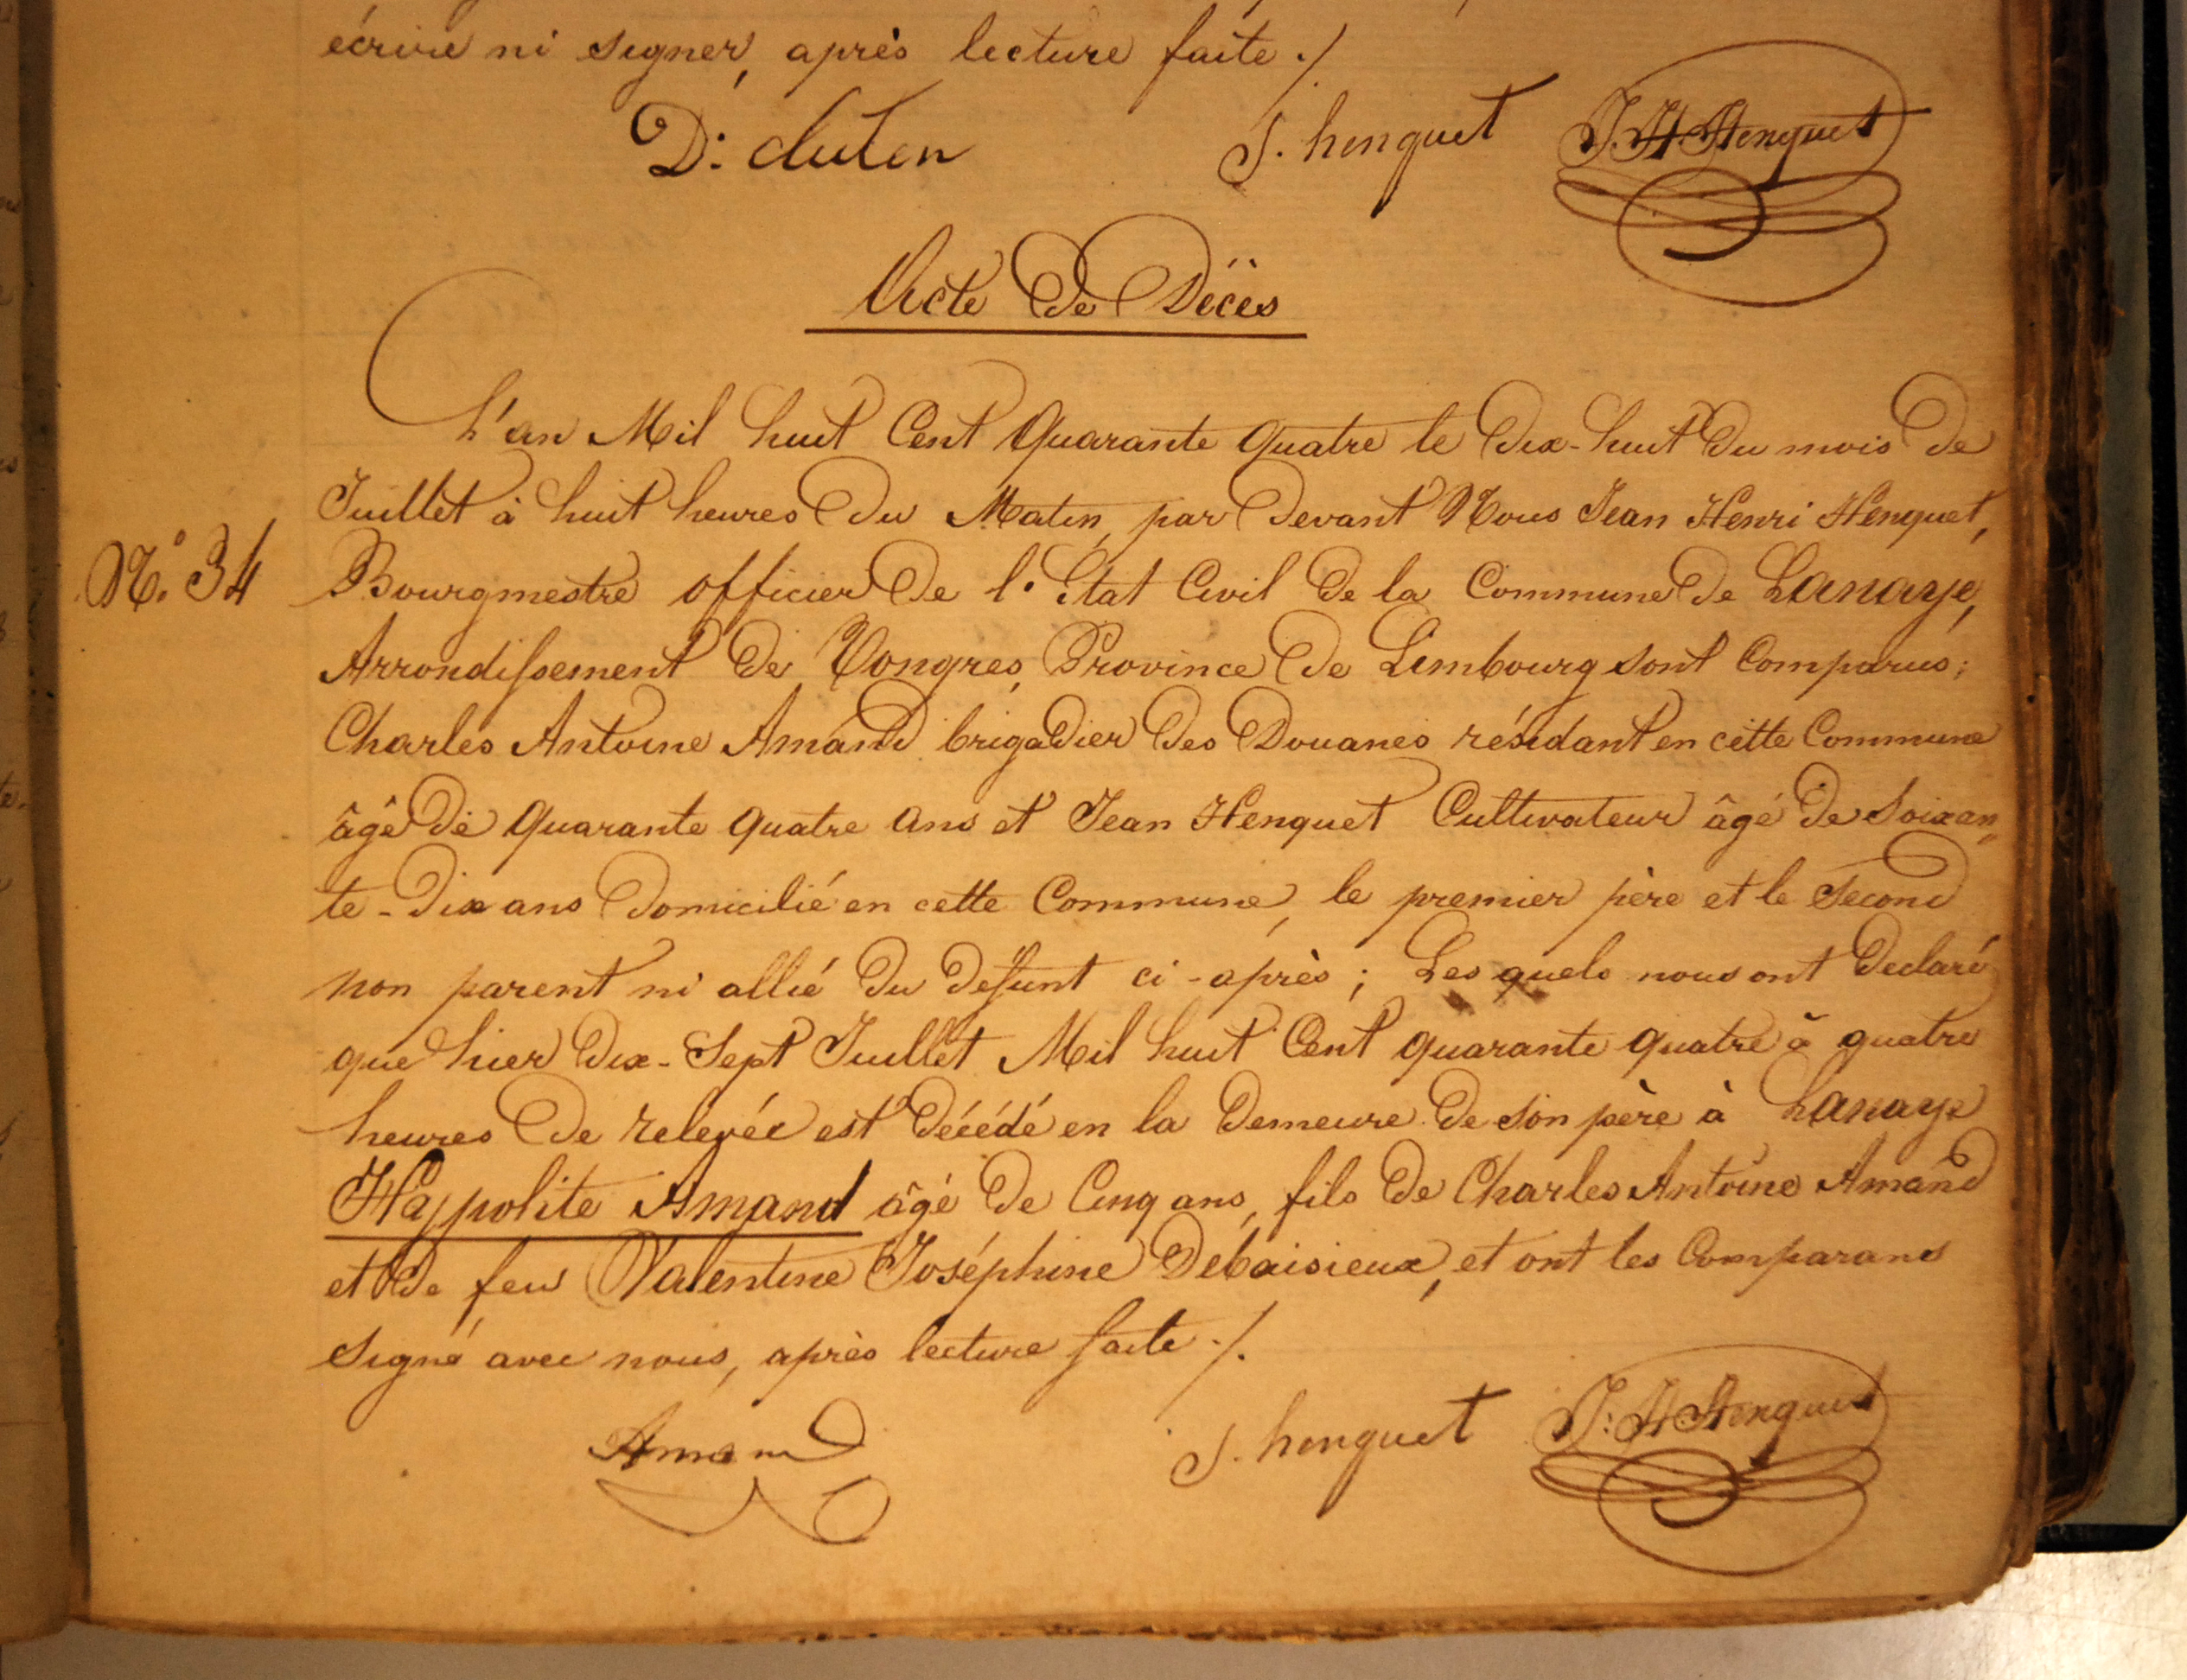 écrire ni signer, après lecture faite ./.
D: duten
J. henquet
J. H. Henquet
Acte de Décès
L'an Mil huit Cent Quarante Quatre le Dix-huit du mois de
Juillet à huit heures du Matin, par devant Nous Jean Henri Henquet,
N.° 34
Bourgmestre officier de l'État Civil de la Commune de Lanaye,
Arrondissement de Tongres, Province de Limbourg sont Comparus;
Charles Antoine Amand brigadier des Douanes résidant en cette Commune
âgé de Quarante Quatre ans et Jean Henquet Cultivateur âgé de Soixan-
te-Dix ans Domicilié en cette Commune, le premier père et le Second
non parent ni allié du defunt ci-après; Les quels nous ont Declaré
que hier Dix-Sept Juillet Mil huit Cent quarante quatre à quatre
heures de relevée est Décédé en la Demeure de son père à Lanaye
Hyppolite Amand âgé de Cinq ans, fils de Charles Antoine Amand
et de feu Valentine Joséphine Debaisieux, et ont les Comparans
signé avec nous, après lecture faite ./.
Amand
J. henquet
J: H Henquet